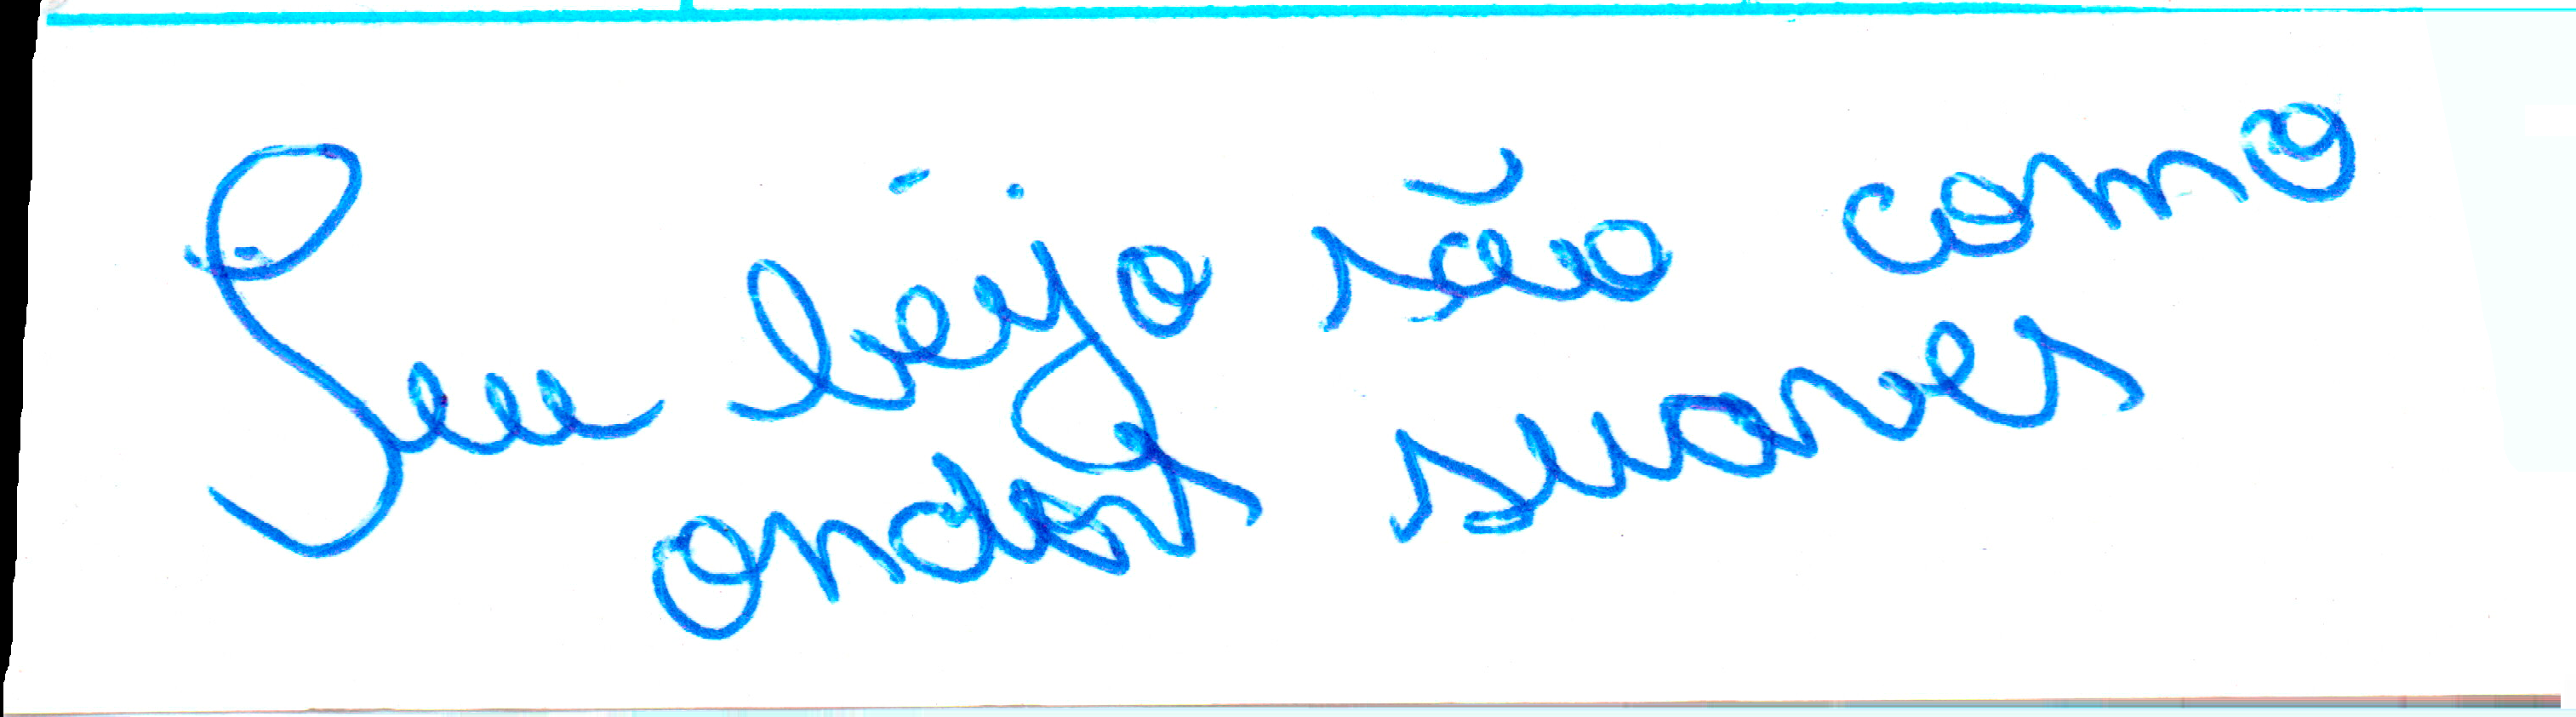 Seu beijo são como
ondas suaves